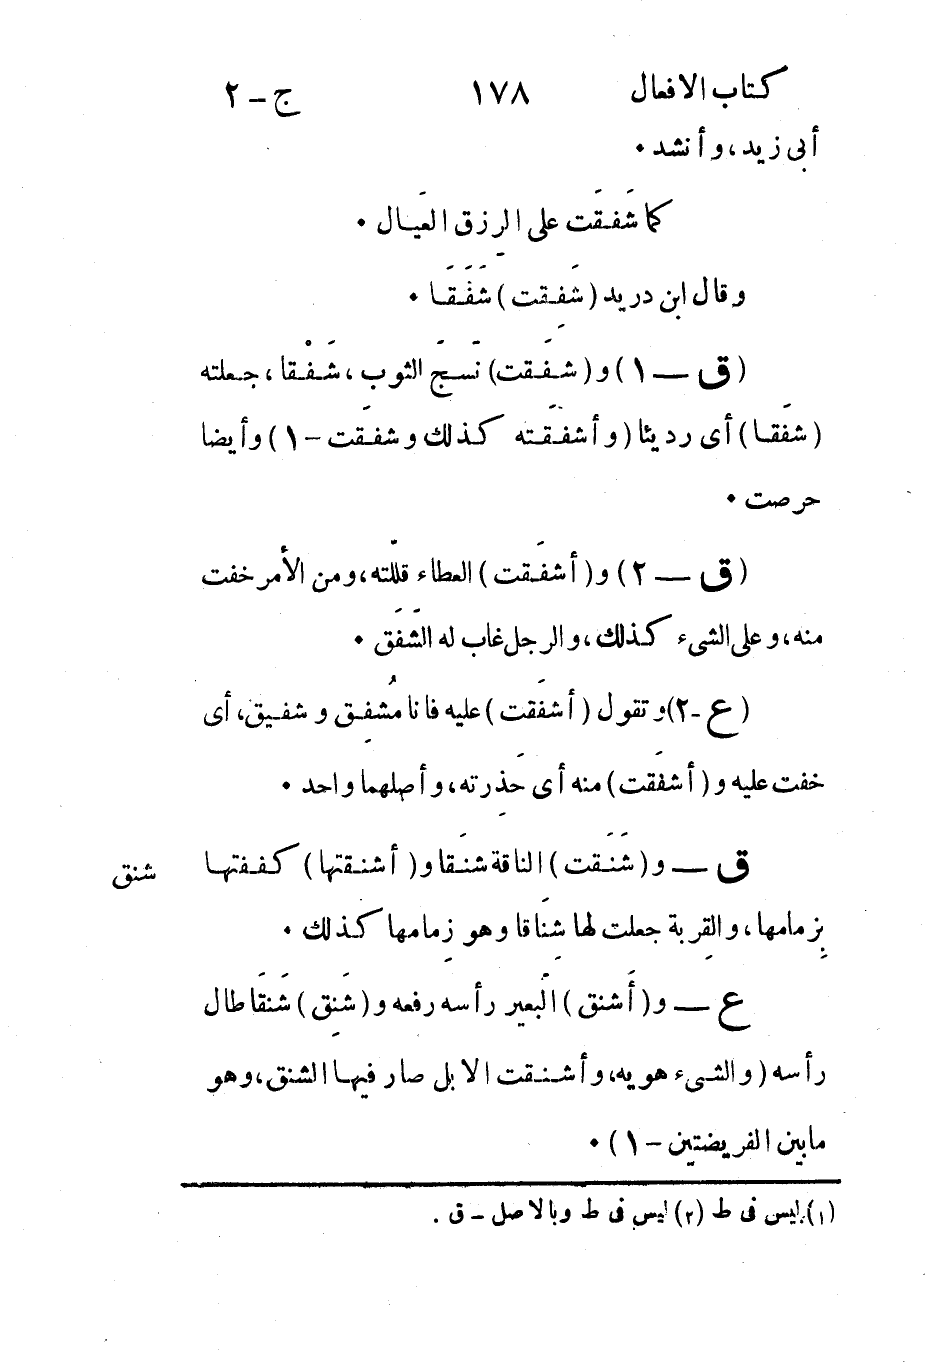 كتاب الافعال ١٧٨ ج - ٢
أبى زيد، و أنشد ٠
كما شَفَقَت على الرِزق العَيال ٠
و قال ابن دريد ( شَفِقت ) شَفَقَا ٠
( ق — ١ ) و ( شفَقت ) نَسجَ الثوب ، شَفْقا ، جعلته
( شفَقا ) أى رديئا ( و أشفَقته كذلك و شفَقت - ١ ) وأيضا
حرصت ٠
( ق — ٢ ) و ( أشفَقت ) العطاء قللته، ومن الأمر خفت
منه، و على الشىء كذلك ، و الرجل غاب له الشَفَق ٠
( ع - ٢ ) و تقول ( أشفَقت ) عليه فانا مُشفِق و شفيق، أى
خفت عليه و ( أشفَقت ) منه أى حَذِرته، و أصلهما واحد ٠
ق — و ( شَنَقت ) الناقة شنَقا و ( أشنقتها ) كففتها
شنق
بِزمامها ، و القِربة جعلت لها شِنَاقا وهو زِمامها كذلك ٠
ع — و ( أَشنق ) البَعير رأسه رفعه و ( شَنِق ) شَنَقَا طال
رأسه ( و الشىء هويه، و أشنقت الابل صار فيها الشنق ، وهو
مابين الفريضتين - ١ ) ٠
(١) ليس فى ط (٢) ليس فى ط وبالاصل - ق .